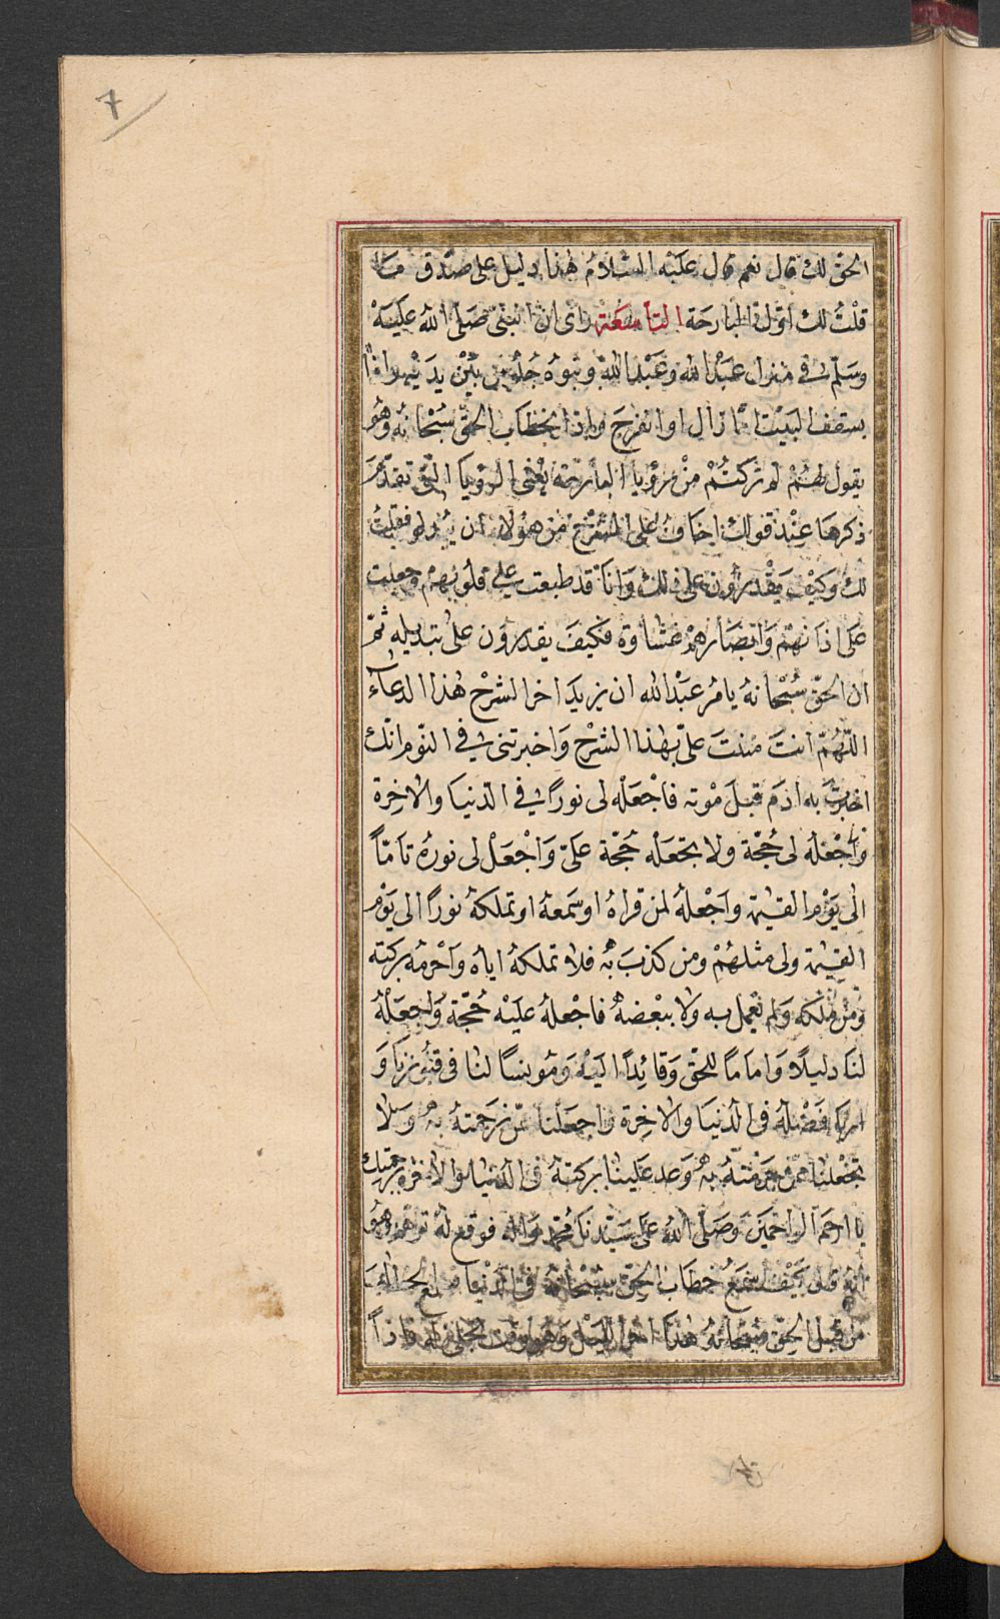 7
الحق لك قال نعم قال عليه السلام هذا دليل على صدق ما
قلت لك اول البارحة التاسعة راى ان النبى صلى الله عليه
وسلم فى منزل عبد الله وعبد الله وبنوه جلوس بين يديه واذا
بسقف البيت اما زال او انفرج واذا بخطاب الحق سبحانه وهو
يقول لهم لم تركتم من رؤيا البارحة يعنى الرؤيا التى تقدم
ذكرها عند قولك اخاف على الشرح من هؤلاء ان يبدلو فقلت
لك وكيف يقدرون على ذلك وانا قد طبعت على قلوبهم وجعلت
على اذانهم وابصارهم غشاوة فكيف يقدرون على تبديله ثم
ان الحق سبحانه يامر عبد الله ان يزيد اخر الشرح هذا الدعاء
اللهم انت مننت علىّ بهذا الشرح واخبرتنى فى النوم انك
اخبرت به ادم قبل موته فاجعله لى نوراً فى الدنيا والاخرة
واجعله لى حجة ولا تجعله حجة علىّ واجعل لى نوره تامّاً
الى يوم القيمة واجعله لمن قراه او سمعه او تملكه نوراً الى يوم
القيمة ولى مثلهم ومن كذب به فلا تملكه اياه واحرمه بركته
ومن ملكه ولم يعمل به ولا ببعضه فاجعله عليه حجة واجعله
لنا دليلا واماماً للحق وقائداً اليه ومونسا لنا فى قبورنا و
ارنا فضله فى الدنيا والاخرة واجعلنا ممن رحمته به ولا
تجعلنا ممن حرمته به وعد علينا بركته فى الدنيا والاخرة برحمتك
يا ارحم الراحمين وصلى الله على سيدنا محمد واله فوقع له توهم وهو
من قبل الحق سبحانه هذا